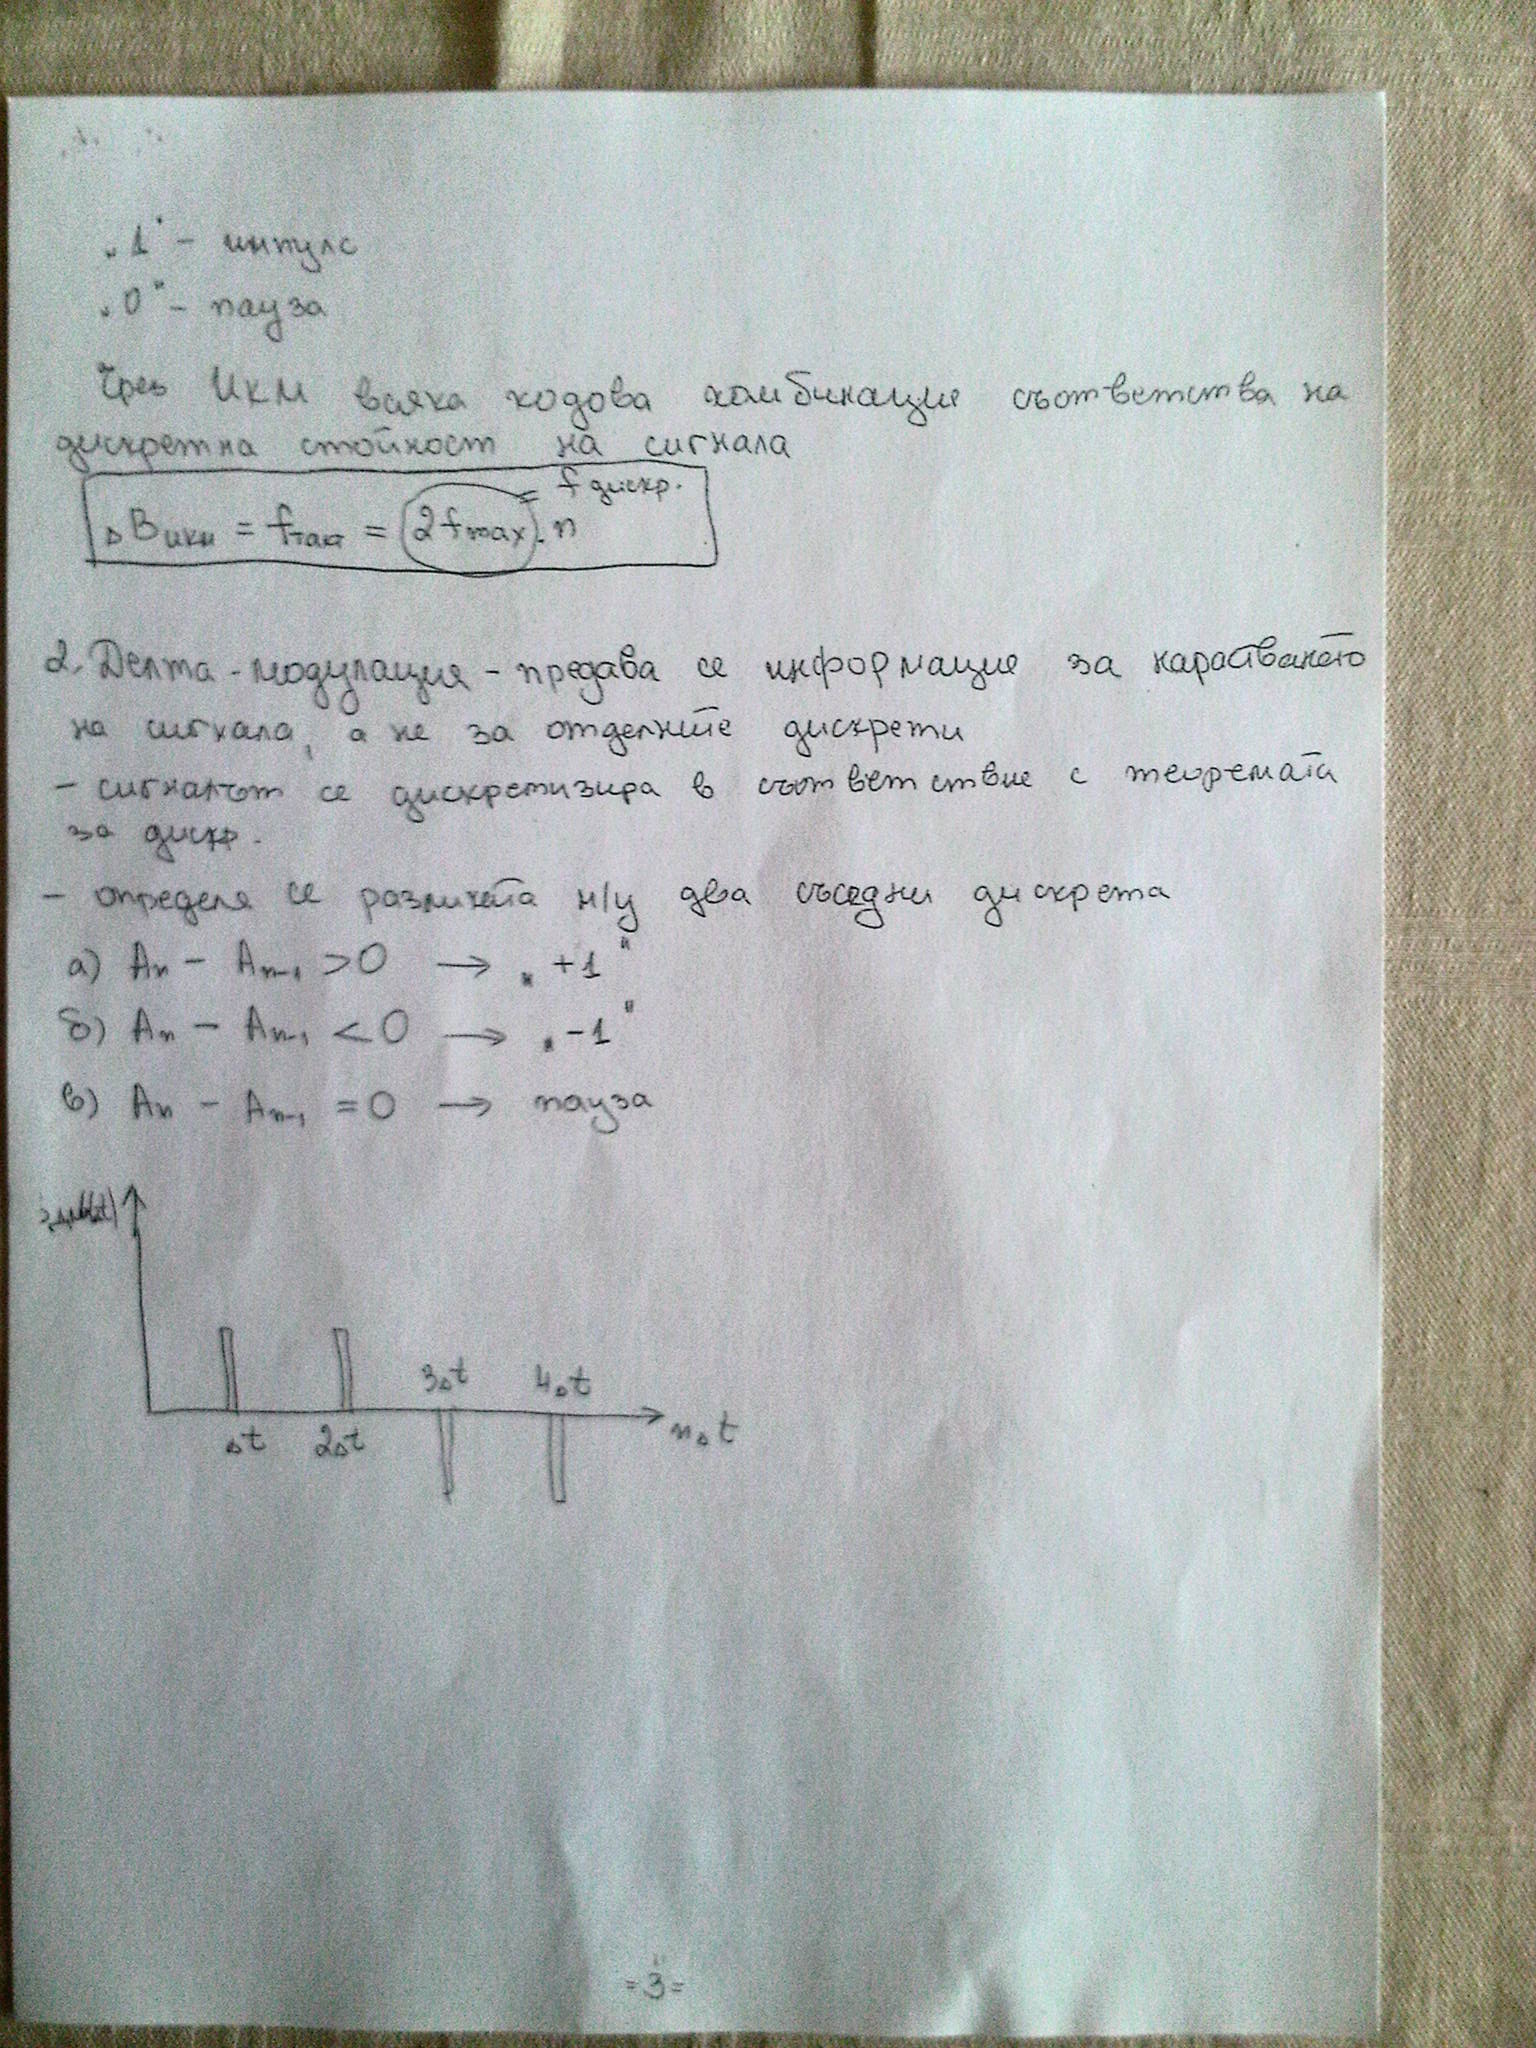 „1" - импулс
„0" - пауза
Чрез ИКМ всяка кодова комбинация съответства на
дискретна стойност на сигнала
= f дискр.
ΔBикм = fтакт = 2fmax . n
2. Делта - модулация - предава се информация за нарастването
на сигнала, а не за отделните дискрети
- сигналът се дискретизира в съответствие с теоремата
за дискр.
- определя се разликата м/у два съседни дискрета
а) An - An-1 >0 → „+1"
б) An - An-1 <0 → „-1"
в) An - An-1 =0 → пауза
3Δt 4Δt
nΔt
Δt 2Δt
=3=